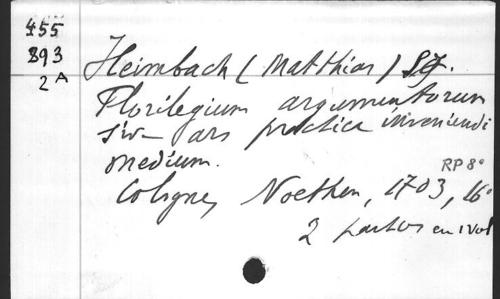 455
893
2 A
Heimbach (Matthias) SJ.
Florilegium argumentorum
siv- ars practica inveniendi
medium.
RP 8°
Cologne, Noethen, 1703, 16°
2 partes en 1 vol